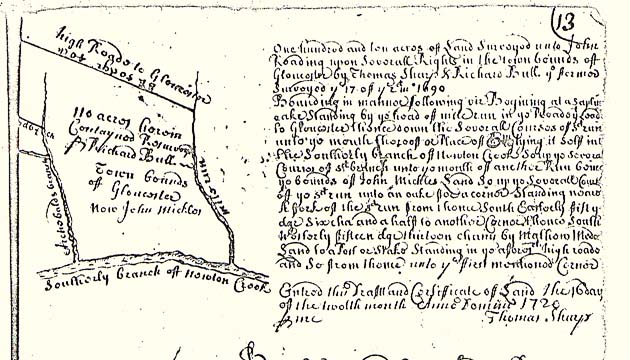 13
high Roade to Gloucester
110 acres herein
Contayned Resurvey
p Richard Bull
Town bounds
of Gloucester
Now John Mickles
Southerly branch of Newton Creek
One hundred and ten acres of Land Surveyed unto John
Roading upon Severall Rights in the town bounds off
Gloucester by Thomas Sharp & Richard Bull
Surveyed ye 17 of ye 1690
Bounding in manner following viz Begining at a Saplin
oake Standing by ye head of run in ye Roade
to Gloucester thence down the Severall Courses of sd run
unto ye mouth thereof or Place of it Self int
the Southerly branch of Newton Creek Soe up ye Severall
Courses of sd branch unto ye mouth of another Run being
ye bounds of John Mickles Land So up ye Severall Cours
of ye sd run unto an oake for a corner Standing neare
a fork of the sd run from thence South Easterly fifty
and a half to another Corner thence South
Westerly fifteen deg thirteen chains by Mathew
Land to a Post or Stake Standing in ye afores high roade
and So from thence unto ye first mentioned Corner
Entred this Draft and Certificate of Land the 16 day
of the twelth month Anno Domini 1720
p me Thomas Sharp